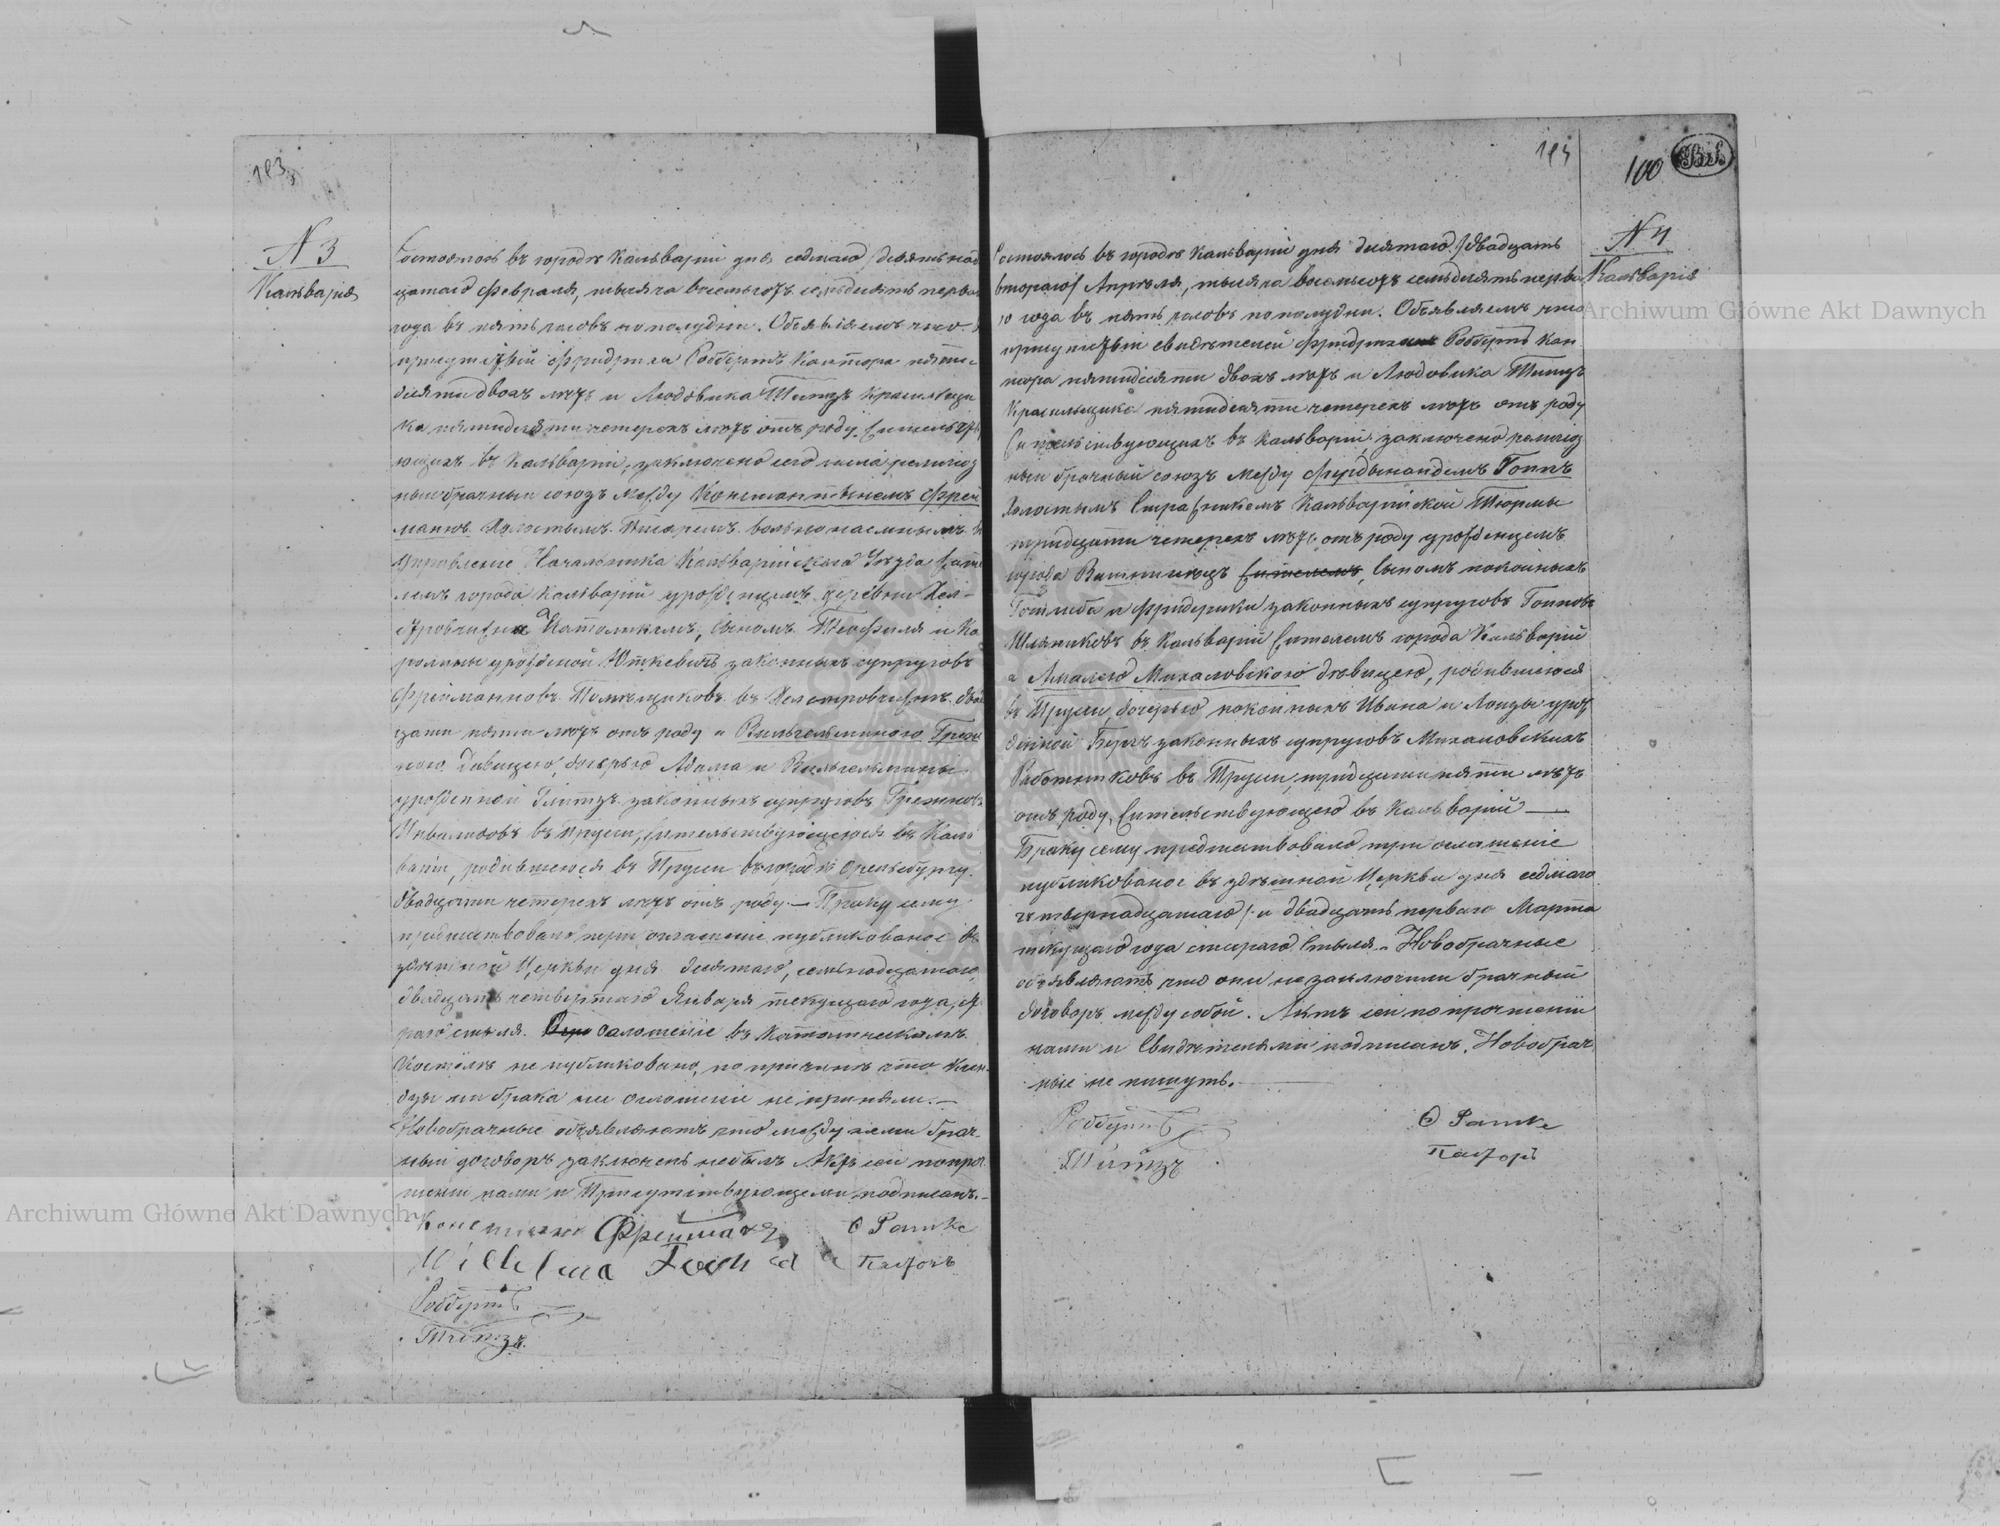 193
N 3
Кальварія
Состоялось въ городѣ Кальваріи дня седмаго /девятьнад
цатаго Февраля, тысяча восемьсотъ семьдесятъ перваго
года въ пять часовъ по полудни. Объявляемъ что
присутствіи Фридриха Роббертъ Кантора пяти
десяти двохъ лѣтъ и Людовика Титзъ Красильщи
ка пятидесяти четерехъ лѣтъ отъ роду жительству
ющихъ въ Кальваріи, заключено сего числа религіоз
ный брачный союзъ между Константыномъ Фрей
маномъ Холостымъ Писаремъ вольнонаемнымъ въ
Управленіе Начальника Кальварійскаго Уѣзда жите
лемъ города Кальваріи урожденцемъ деревни
Католикомъ, сыномъ Теофиля и Ка
ролины урожденой Юткевичъ законныхъ супруговъ
Фреймановъ Помѣщиковъ въ двад
цати пяти лѣтъ отъ роду и Вильгельминою
девицею, дочерью Адама и Вильгельмины
урожденной законныхъ супруговъ
Инвалидовъ въ Пруссіи, жительствующеюся въ Каль
варіи, родившеюся въ Пруссіи въ городѣ Орельсбургу
двадцати четерехъ лѣтъ отъ роду. — Браку сему
предшествовало три оглашеніе публикованое въ
здѣшной Церкви дня десятаго, семьнадцатаго,
двадцать четвертаго Января текущаго года, ста
раго стыля. оглошеніе въ Католическомъ
Костёлѣ не публиковано, по причинѣ что Ксен
дзы ни брака ни оглошеніе не приняли. —
Новобрачные объявляютъ что между ними брач
ный договоръ заключенъ небылъ Актъ сей по проч
теніи нами и Присутствующеми подписанъ. —
Константин Фрейман О Ранке
Wilhelmina Пасторъ
Роббертъ
Титзъ
194
100
N 4
Кальварія
Состоялось въ городѣ Кальваріи дня десятаго /двадцать
втораго/ Апрѣля, тысяча восемьсотъ семьдесятъ перва
го года въ пять часовъ по полудни. Объявляемъ что
присутствіи свидѣтелей Фридриха Роббертъ Кан
тора пятидесяти двохъ лѣтъ и Людовика Титцъ
Красильщика пятидесяти четерехъ лѣтъ отъ роду
жительствующихъ въ Кальваріи, заключено религіоз
ный брачный союзъ между Фердынандемъ Гоппъ
Холостымъ Стражникомъ Кальварійской Тюрмы
тридцати четерехъ лѣтъ отъ роду урожденцемъ
города жителемъ, сыномъ покойныхъ
Готлиба и Фридерики законныхъ супруговъ Гопповъ
въ Кальваріи жителемъ города Кальваріи
а Амалею Михаловскою дѣвицею, родившеюся
въ Пруссіи, дочерью покойныхъ Ивана и Луизы урож
денной Бергъ законныхъ супруговъ Михаловскихъ
Работниковъ въ Пруссіи, тридцати пяти лѣтъ
отъ роду, жительствующею въ Кальваріи —
Браку сему предшествовало три оглашеніе
публикованое въ здѣшной Церкви дня седмаго
четвернадцатаго/ и двадцать перваго Марта
текущаго года стараго стыля. Новобрачные
объявляютъ что они не заключили брачный
договоръ между собой. Актъ сей по прочтеніи
нами и Свидѣтелями подписанъ. Новобрач
ные не пишутъ.
Роббертъ О Ранке
Титзъ Пасторъ
Archiwum Główne Akt Dawnych
Archiwum Główne Akt Dawnych